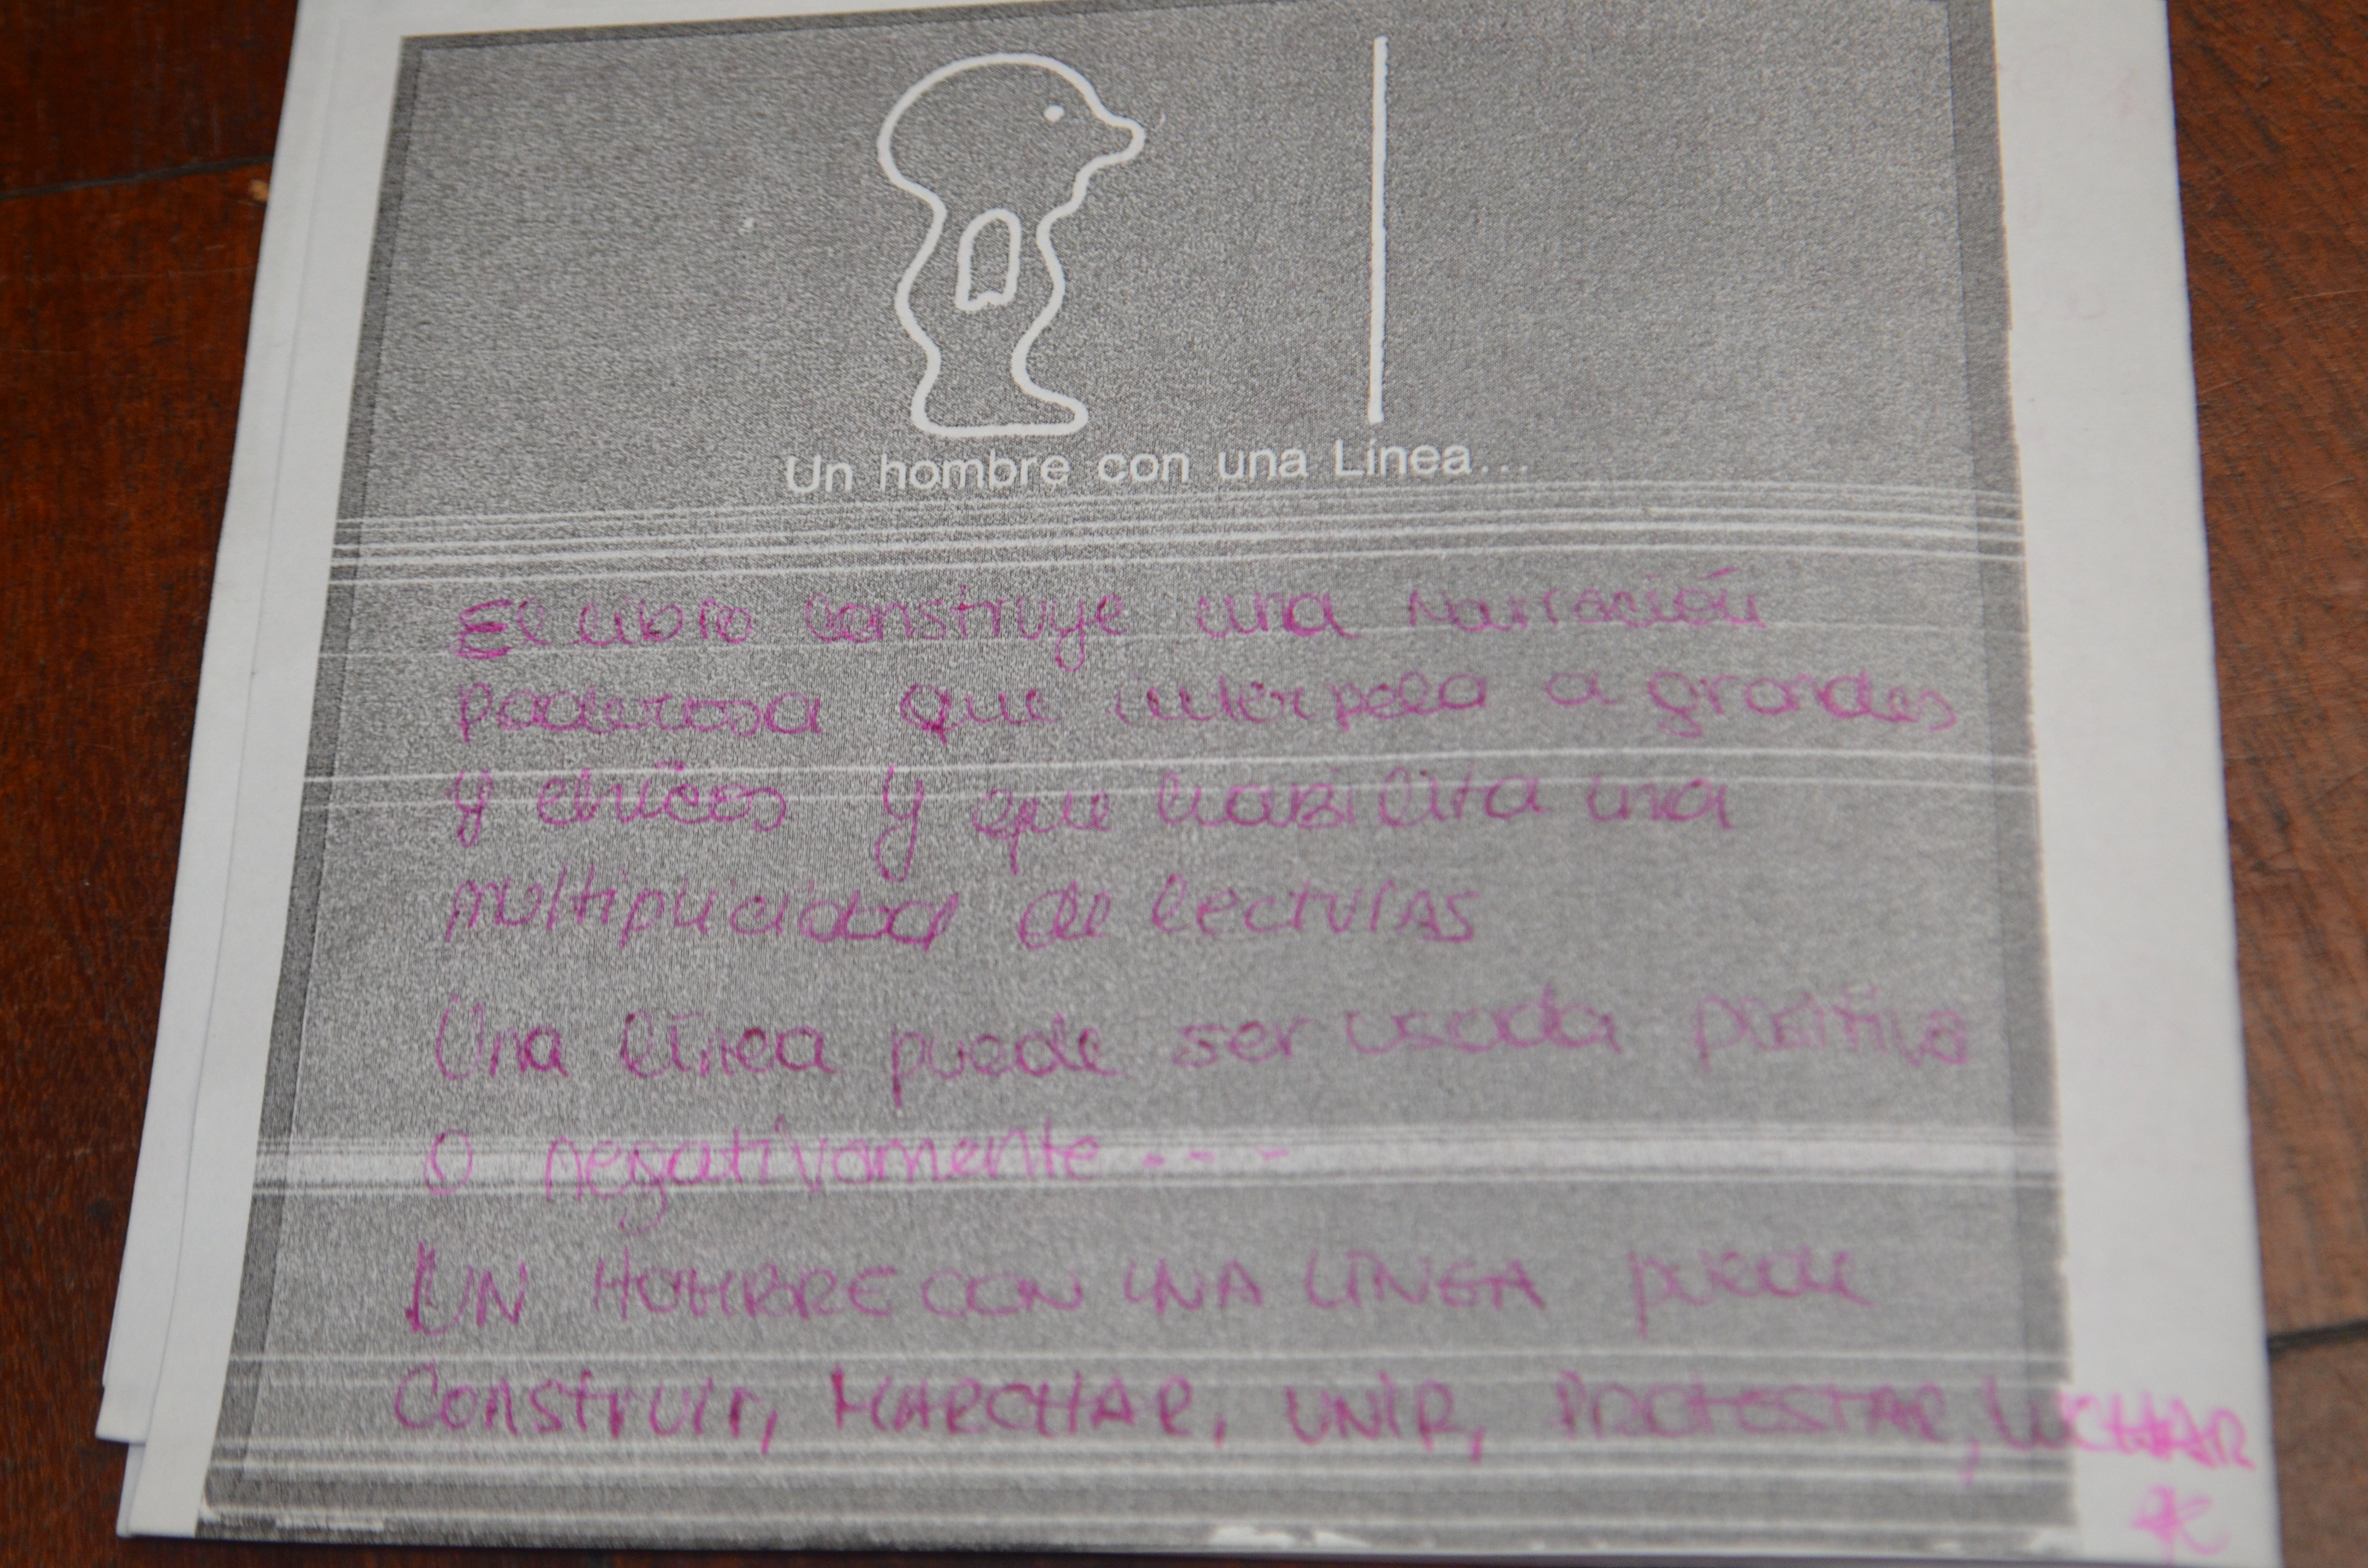 Un hombre con una Línea...
El libro construye una narración
poderosa que interpela a grandes
y chicos y que habilita una
multiplicidad de lecturas
Una línea puede ser usada positiva
o negativamente....
UN HOMBRE CON UNA LÍNEA puede
Construir, MARCHAR, UNIR, PROTESTAR, LUCHAR